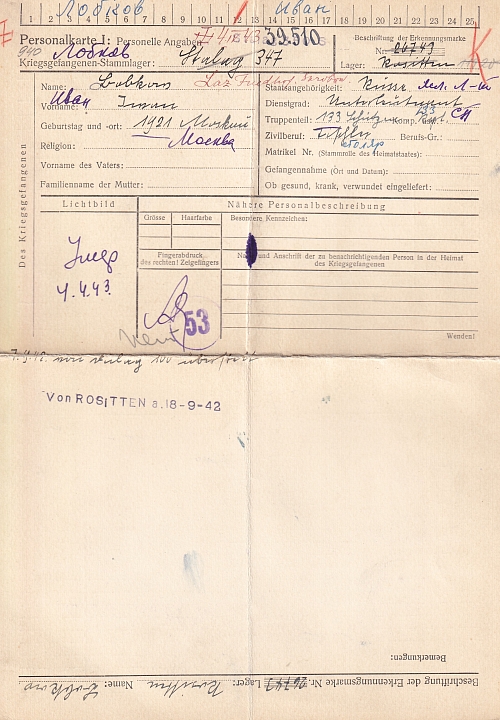 Лобков Иван
1 2 3 4 5 6 7 8 9 10 11 12 13 14 15 16 17 18 19 20 21 22 23 24 25
Personalkarte I: Personelle Angaben
† 4.4.43 39510
Beschriftung der Erkennungsmarke
Nr. 26749
940 Лобков
Kriegsgefangenen-Stammlager: Stalag 347
Lager: Rositten
Des Kriegsgefangenen
Name: Lobkow
Иван
Vorname: Iwan
Geburtstag und -ort: 1921 Moskau
Москва
Religion:
Vorname des Vaters:
Familienname der Mutter:
Staatsangehörigkeit: Russe
Dienstgrad:
Truppenteil: 133 Schützen Komp. usw.: СП
Zivilberuf: Tischler Berufs-Gr.:
столяр
Matrikel Nr. (Stammrolle des Heimatstaates):
Gefangennahme (Ort und Datum):
Ob gesund, krank, verwundet eingeliefert:
Lichtbild
Nähere Personalbeschreibung
Grösse Haarfarbe Besondere Kennzeichen:
Fingerabdruck
des rechten! Zeigefingers
Name und Anschrift der zu benachrichtigenden Person in der Heimat
des Kriegsgefangenen
Умер
4.4.43.
53
Wenden!
Von ROSITTEN a.18-9-42
Bemerkungen:
Beschriftung der Erkennungsmarke Nr. 26749 Lager: Rositten Name: Lobkow